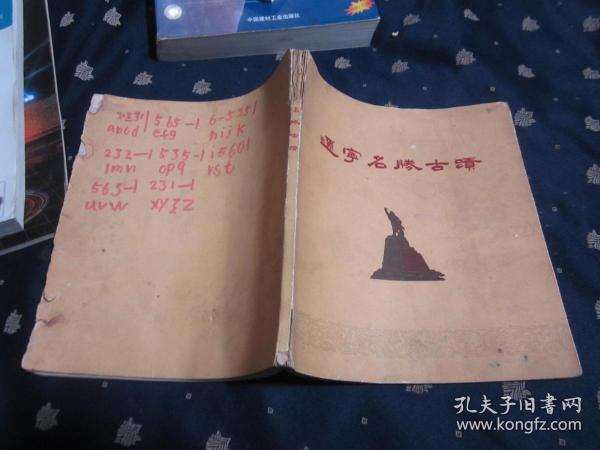 中国建材工业出版社
565-1 6-5351
abcd efg hijk
232-1 535-1 i5601
lmn opq rst
565-1 231-1
uvw xyzz
遼寧名勝古蹟
孔夫子旧书网
www.kongfz.com